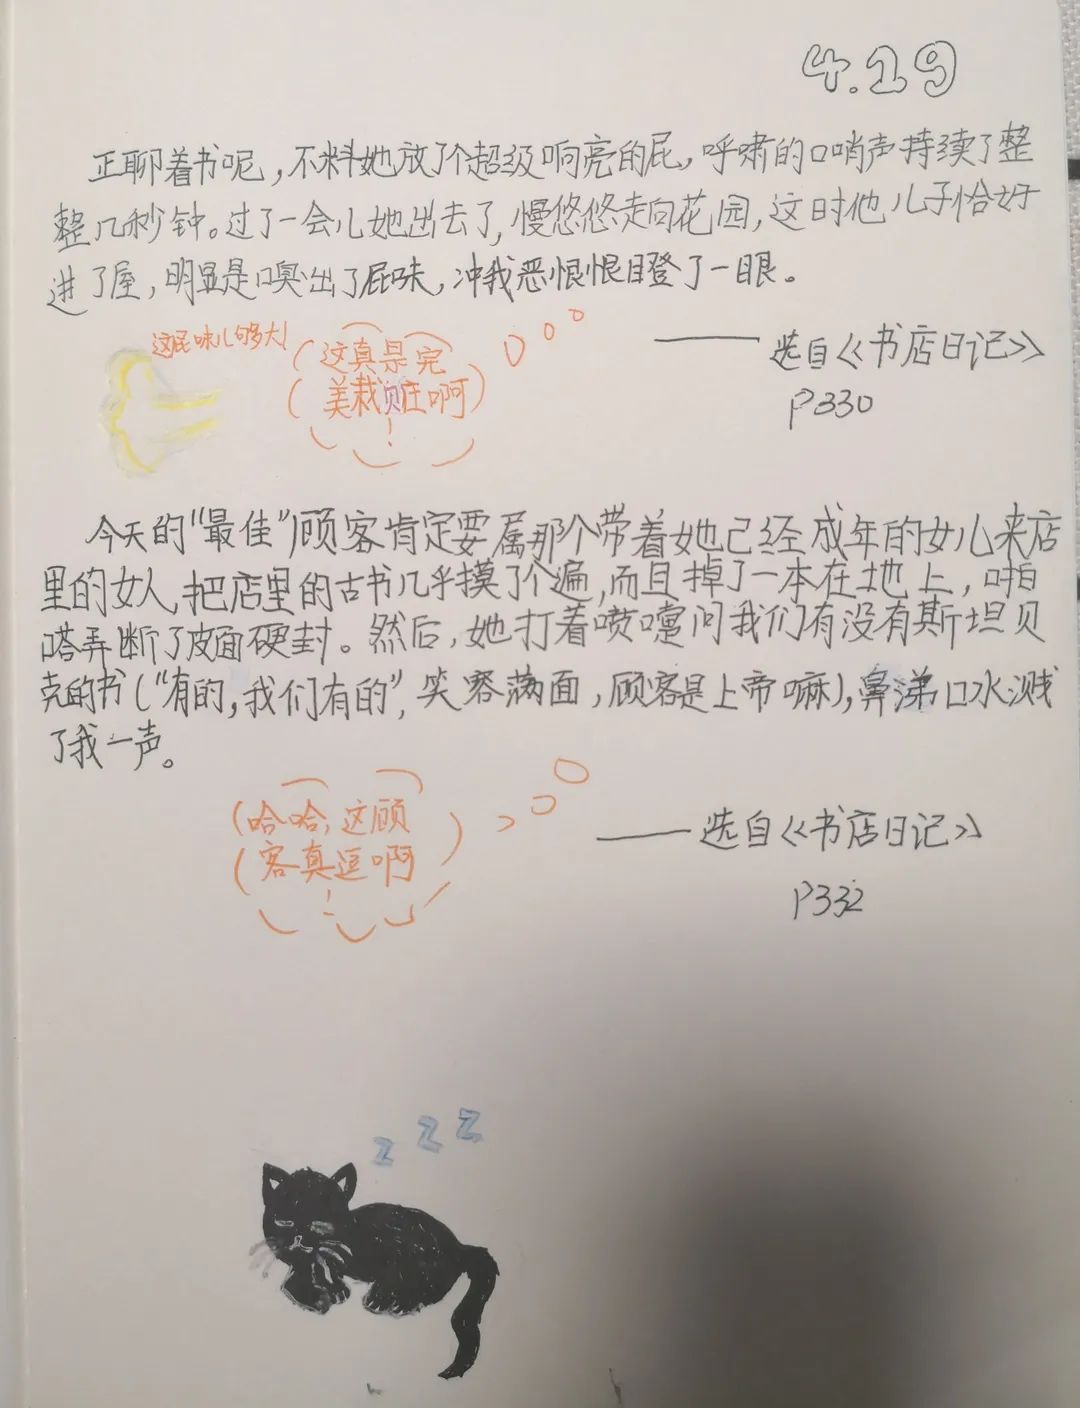 4.19
正聊着书呢，不料她放了个超级响亮的屁，呼啸的口哨声持续了整
整几秒钟。过了一会儿她出去了，慢悠悠走向花园，这时他儿子恰好
进了屋，明显是嗅出了屁味，冲我恶恨恨瞪了一眼。
这屁味儿够大！
这真是完
美栽赃啊
！
——选自《书店日记》
P330
今天的“最佳”顾客肯定要属那个带着她已经成年的女儿来店
里的女人，把店里的古书几乎摸了个遍，而且掉了一本在地上，啪
嗒弄断了皮面硬封。然后，她打着喷嚏问我们有没有斯坦贝
克的书（“有的，我们有的”，笑容满面，顾客是上帝嘛），鼻涕口水溅
了我一声。
哈哈，这顾
客真逗啊
！
——选自《书店日记》
P332
z z z